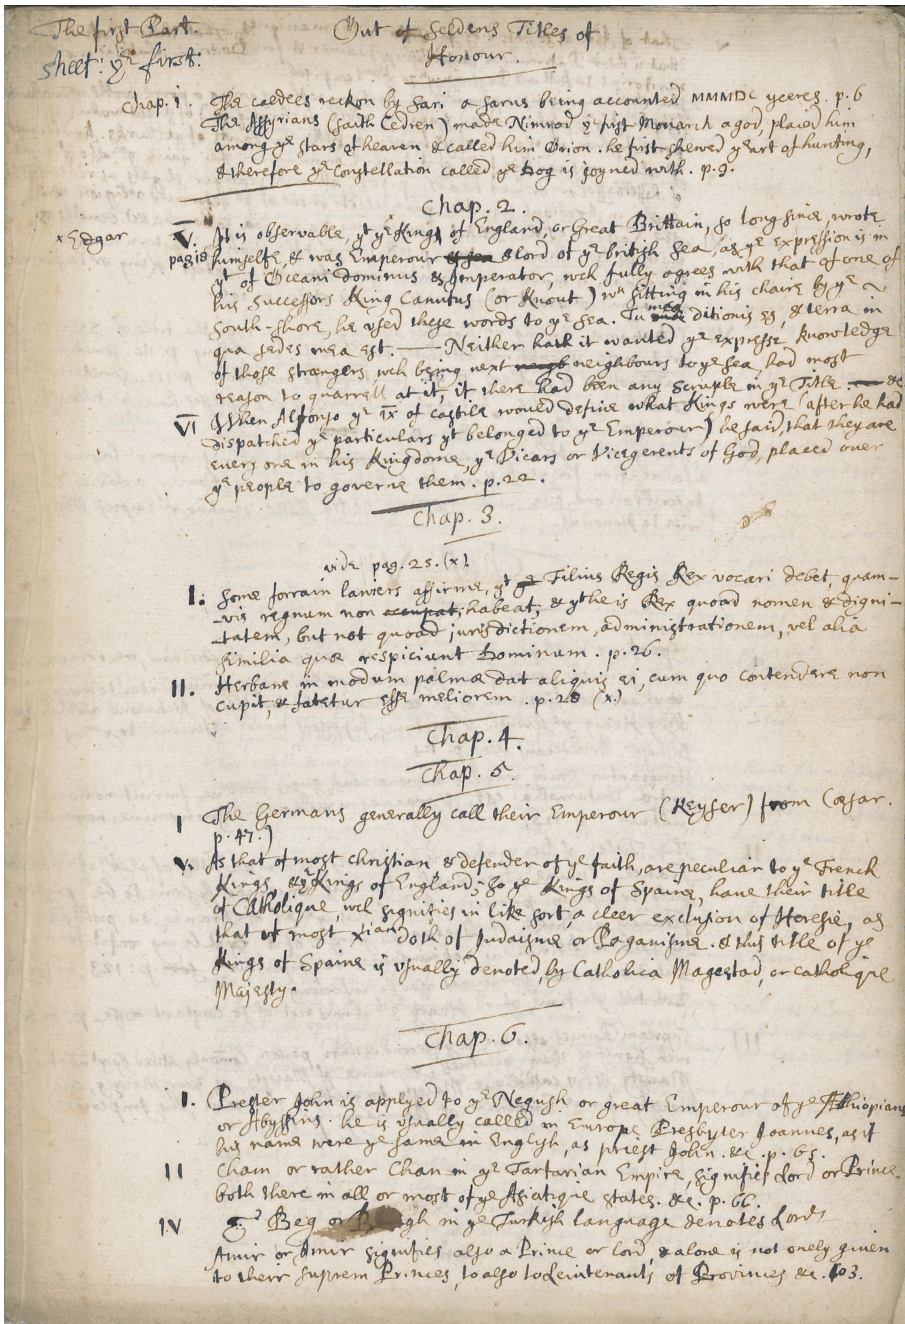 The first Part.
Out of Seldens Titles of
Honour.
sheet: ye first:
Chap. 1.
The Caldees reckon by Sari a Sarus being accounted MMMDC yeeres. p. 6
The Assyrians (saith Cedren) made Nimrod ye first Monarch a god, placed him
among ye stars of heaven & called him Orion. he first shewed ye art of hunting,
& therefore ye Constellation called ye Dog is joyned with. p. 9.
Chap. 2.
x Edgar
V. It is observable, yt ye Kings of England, or Great Brittain, so long since, wrote
pag 18 himselfe, & was Emperour & sea & lord of ye british sea, as ye expression is in
yt of Oceani dominus & Imperator, wch fully agrees with that of one of
his successors King Canutus (or Knout) wn sitting in his chaire by ye
South-shore, he used these words to ye sea. Tu meæ ditionis es, & terra in
qua sedes mea est. — Neither hath it wanted ye expresse knowledge
of those strangers, wch being next neigb neighbours to ye sea, had most
reason to quarrell at it, if there had been any scruple in ye Title &c
VI When Alfonso ye IX of Castile would define what Kings were (after he had
dispatched ye particulars yt belonged to ye Emperour) he said, that they are
every one in his Kingdome, ye Vicars or Vicegerents of God, placed over
ye people to governe them. p. 22.
Chap. 3.
vide pag. 25. (x).
I. Some forrain lawiers affirme, yt Filius Regis Rex vocari debet, quam-
-vis regnum non occupat, habeat, & yt he is Rex quoad nomen & digni-
-tatem, but not quoad jurisdictionem, administrationem, vel alia
similia quæ respiciunt Dominum. p. 26.
II. Herbam in modum palmæ dat aliquis ei, cum quo contendere non
cupit, & fatetur esse meliorem. p. 28 (x.)
Chap. 4.
Chap. 5.
I The Germans generally call their Emperour (Keyser) from Cæsar.
p. 47.)
V. As that of most Christian & defender of ye faith, are peculiar to ye French
Kings, & ye Kings of England; So ye Kings of Spaine, have their title
of Catholique, wch signifies in like sort, a cleer exclusion of Heresie, as
that of most xtian doth of Judaisme or Paganisme. & this title of ye
Kings of Spaine is usually denoted by Catholica Magestad, or catholique
Majesty.
Chap. 6.
I. Prester John is applyed to ye Negush or great Emperour of ye Æthiopians
or Abyssins. he is usually called in Europe Presbyter Joannes, as if
his name were ye same in English, as priest John. &c. p. 65.
II Cham or rather Chan in ye Tartarian Empire, signifies Lord or Prince
both there in all or most of ye Asiatique states. &c. p. 66.
IV Beg or gh in ye Turkish language denotes Lord
Amir or Emir signifies also a Prince or lord, & alone is not onely given
to their suprem Princes, to also to Leiutenants of Provinces &c. 103.